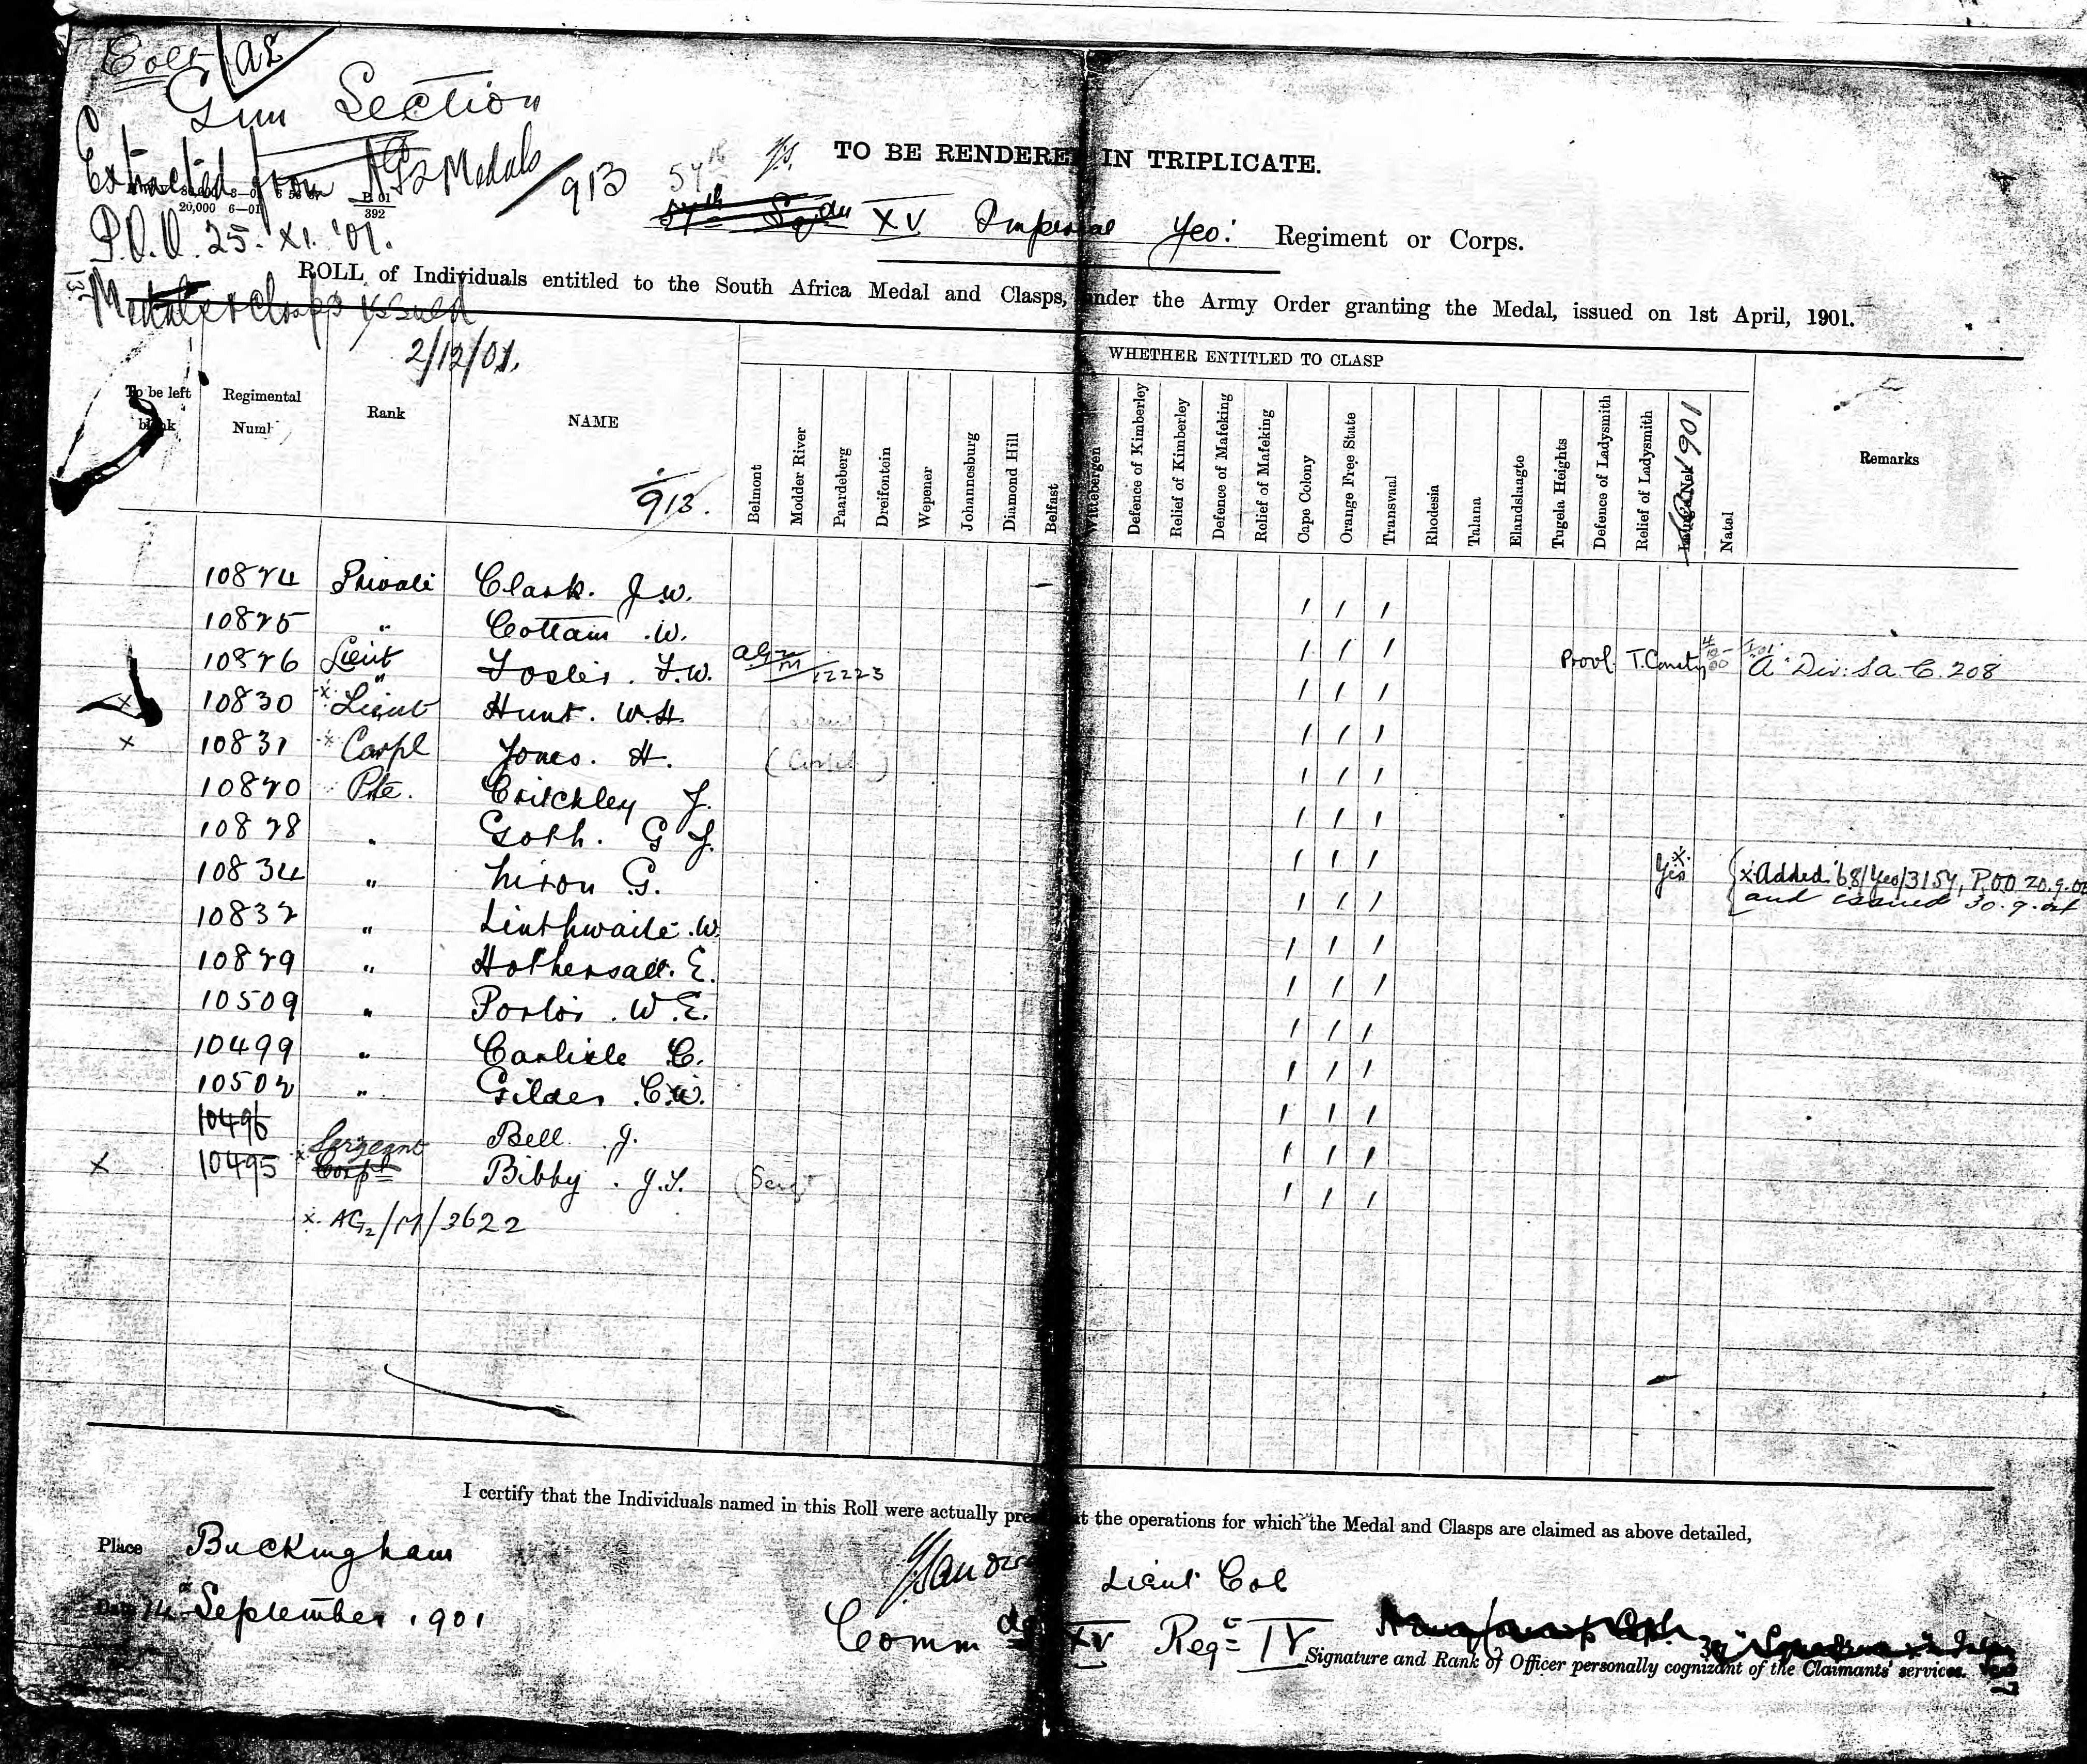 Colt AE
Gun Section
Extracted from AG2 Medals/913
20,000 6—01 392
P.O.O. 25. XI. '01.
Medals & clasps issued
2/12/01.
TO BE RENDERED IN TRIPLICATE.
57th
57th Sqdn XV Imperial Yeo: Regiment or Corps.
ROLL of Individuals entitled to the South Africa Medal and Clasps, under the Army Order granting the Medal, issued on 1st April, 1901.
WHETHER ENTITLED TO CLASP
To be left blank Regimental Numb Rank NAME Belmont Modder River Paardeberg Dreifontein Wepener Johannesburg Diamond Hill Belfast Wittebergen Defence of Kimberley Relief of Kimberley Defence of Mafeking Relief of Mafeking Cape Colony Orange Free State Transvaal Rhodesia Talana Elandslaagte Tugela Heights Defence of Ladysmith Relief of Ladysmith Laing's Nek 1901 Natal Remarks
913.
10824 Private Clark. J.W. / / /
10825 " Cottam .W. / / /
10826 Lieut " Foster. F.W. AG2/M/12223 / / / Provl. T. Consty "A" Div: S.A.C. 208
x 10830 x Lieut Hunt. W.H. / / /
x 10831 x Corpl Jones. H. (Corpl) / / /
10820 Pte. Critchley J. / / /
10828 " Goth. G J. / / /
10834 " Nixon G. / / / x Yes {x Added 68/Yeo/3154, P.O.O. 20.9.02
and issued 30.9.02
10832 " Linthwaite .W. / / /
10829 " Hothersall. E. / / /
10509 " Porter .W.E. / / /
10499 " Carlisle C. / / /
10502 " Gilder C.W. / / /
10496 Bell. J. / / /
x 10495 x Sergeant Corpl Bibby . J.S. (Sergt) / / /
x. AG2/M/3622
I certify that the Individuals named in this Roll were actually present at the operations for which the Medal and Clasps are claimed as above detailed,
Place Buckingham
Lieut Col
Date 14 September 1901
Commdg XV Regt IY
Signature and Rank of Officer personally cognizant of the Claimants' services.